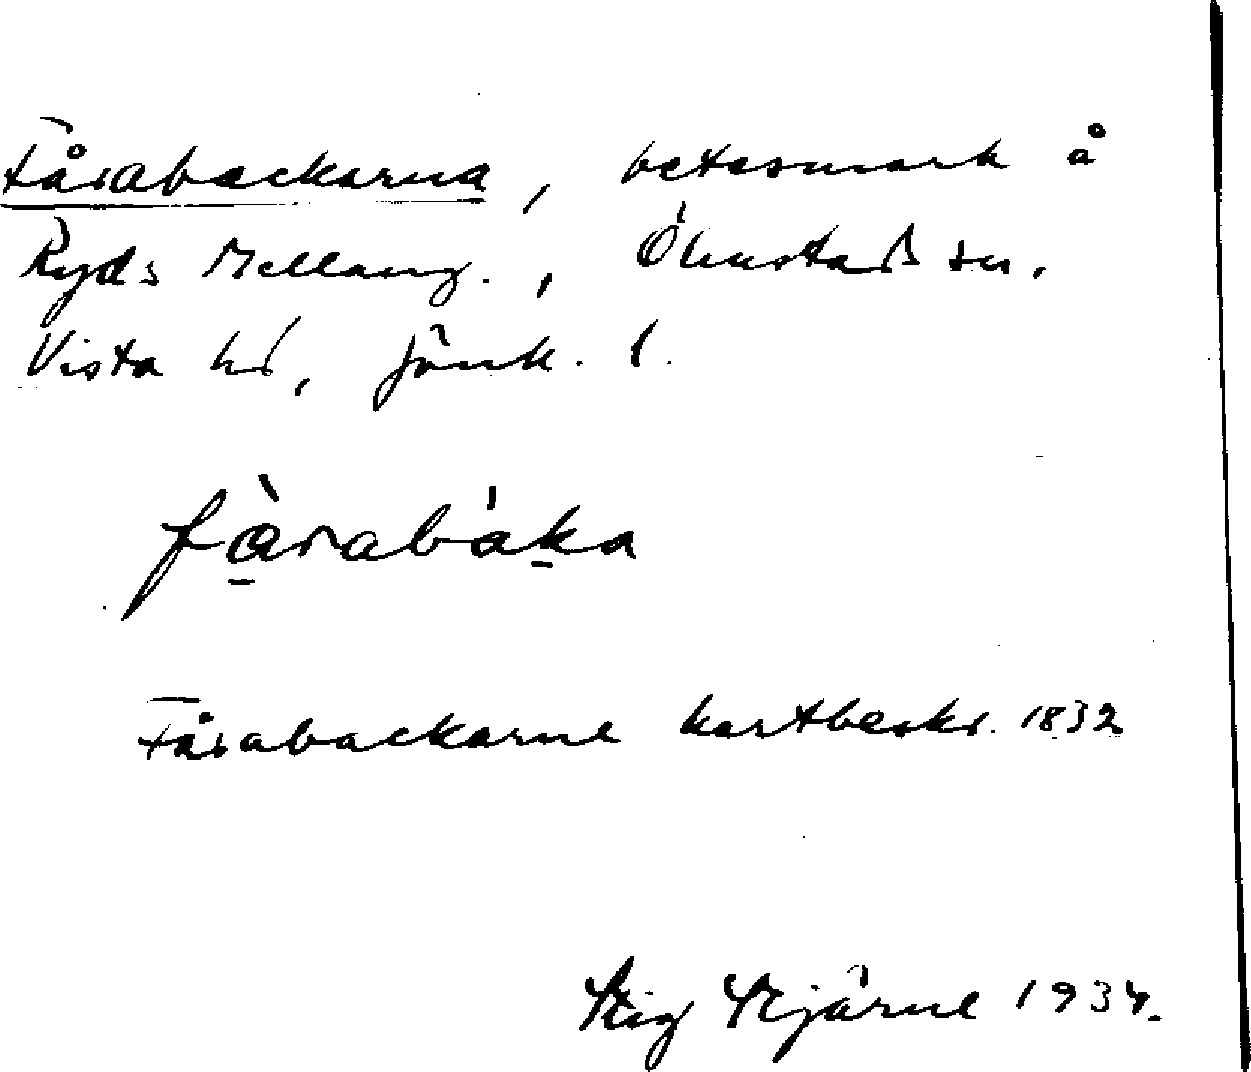 Fårabackarna, betesmark å
Ryds Mellang., Ölmstad sn.
Vista hd, Jönk. l.
fàrabáka
Fårabackarne kartbeskr. 1832
Stig Hjärne 1934.